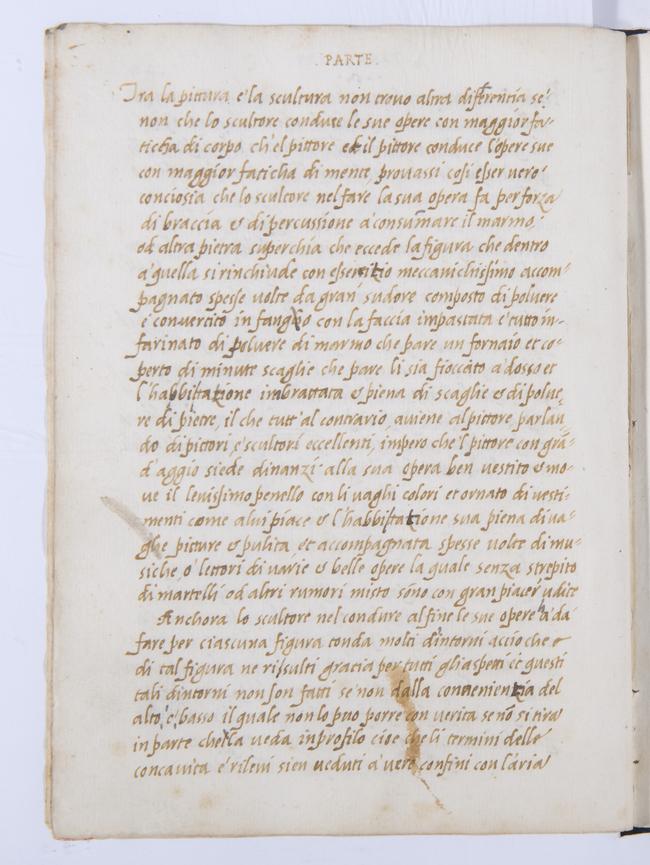 . PARTE .
Tra la pittura e la scultura non trovo altra differentia se
non che lo scultore conduce le sue opere con maggior fa-
ticha di corpo, ch'el pittore et il pittore conduce l'opere sue
con maggior faticha di mente, provassi cosi esser vero
conciosia che lo scultore nel fare la sua opera fa per forza
di braccia & di percussione a consumare il marmo,
od altra pietra superchia che eccede la figura che dentro
a quella si rinchiude con esercitio meccanichissimo accom-
pagnato spesse volte da gran sudore composto di polvere
e convertito in fango con la faccia impastata e tutto in-
farinato di polvere di marmo che pare un fornaio et co-
perto di minute scaglie che pare li sia fioccato adosso et
l'habbitatione imbrattata & piena di scaglie & di polve
re di pietre, il che tutt'al contrario aviene al pittore, parlan
do di pittori, e scultori eccellenti, impero che'l pittore con grã
d'aggio siede dinanzi alla sua opera ben vestito & mo-
ve il levissimo penello con li vaghi colori et ornato di vesti-
menti come a lui piace & l'habbitatione sua piena di va-
ghe pitture & pulita et accompagnata spesse volte di mu-
siche, o lettori di varie & belle opere la quale senza strepito
di martelli od altri rumori misto sono con gran piacer udite
Anchora lo scultore nel condure al fine le sue opere ha da
fare per ciascuna figura tonda molti dintorni accio che
di tal figura ne risulti gracia per tutti gli aspetti et questi
tali dintorni non son fatti se non dalla convenientia del
alto, e basso il quale non lo puo porre con verita se nõ si tira
in parte che la veda in profilo cioe che li termini delle
concavita e rilevi sien veduti avere confini con l'aria